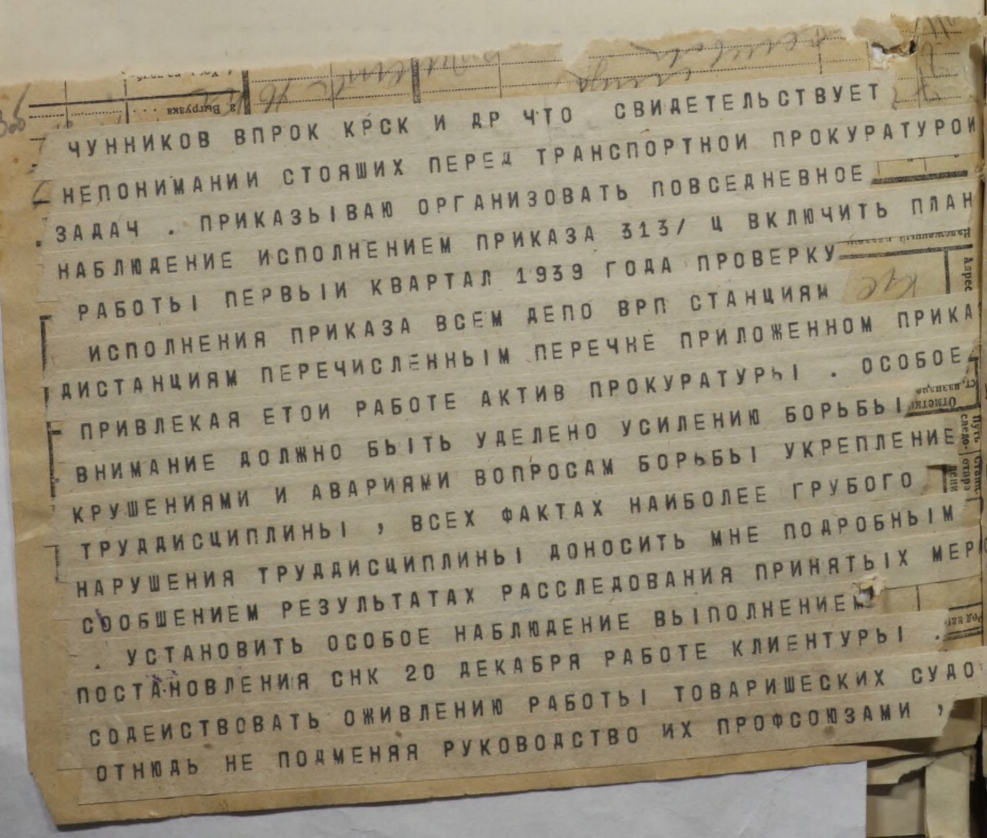 ЧУННИКОВ ВПРОК КРСК И ДР ЧТО СВИДЕТЕЛЬСТВУЕТ
НЕПОНИМАНИИ СТОЯШИХ ПЕРЕД ТРАНСПОРТНОИ ПРОКУРАТУРОИ
ЗАДАЧ . ПРИКАЗЫВАЮ ОРГАНИЗОВАТЬ ПОВСЕДНЕВНОЕ
НАБЛЮДЕНИЕ ИСПОЛНЕНИЕМ ПРИКАЗА 313/ Ц ВКЛЮЧИТЬ ПЛАН
РАБОТЫ ПЕРВЫИ КВАРТАЛ 1939 ГОДА ПРОВЕРКУ
ИСПОЛНЕНИЯ ПРИКАЗА ВСЕМ ДЕПО ВРП СТАНЦИЯМ
ДИСТАНЦИЯМ ПЕРЕЧИСЛЕННЫМ ПЕРЕЧНЕ ПРИЛОЖЕННОМ ПРИКА
ПРИВЛЕКАЯ ЕТОИ РАБОТЕ АКТИВ ПРОКУРАТУРЫ . ОСОБОЕ
ВНИМАНИЕ ДОЛЖНО БЫТЬ УДЕЛЕНО УСИЛЕНИЮ БОРЬБЫ
КРУШЕНИЯМИ И АВАРИЯМИ ВОПРОСАМ БОРЬБЫ УКРЕПЛЕНИЕ
ТРУДДИСЦИПЛИНЫ , ВСЕХ ФАКТАХ НАИБОЛЕЕ ГРУБОГО
НАРУШЕНИЯ ТРУДДИСЦИПЛИНЫ ДОНОСИТЬ МНЕ ПОДРОБНЫМ
СООБШЕНИЕМ РЕЗУЛЬТАТАХ РАССЛЕДОВАНИЯ ПРИНЯТЫХ МЕРЮ
. УСТАНОВИТЬ ОСОБОЕ НАБЛЮДЕНИЕ ВЫПОЛНЕНИЕМ
ПОСТАНОВЛЕНИЯ СНК 20 ДЕКАБРЯ РАБОТЕ КЛИЕНТУРЫ .
СОДЕИСТВОВАТЬ ОЖИВЛЕНИЮ РАБОТЫ ТОВАРИШЕСКИХ СУДО
ОТНЮДЬ НЕ ПОДМЕНЯЯ РУКОВОДСТВО ИХ ПРОФСОЮЗАМИ ,
Выгрузка
Адрес
Отметки
Путь